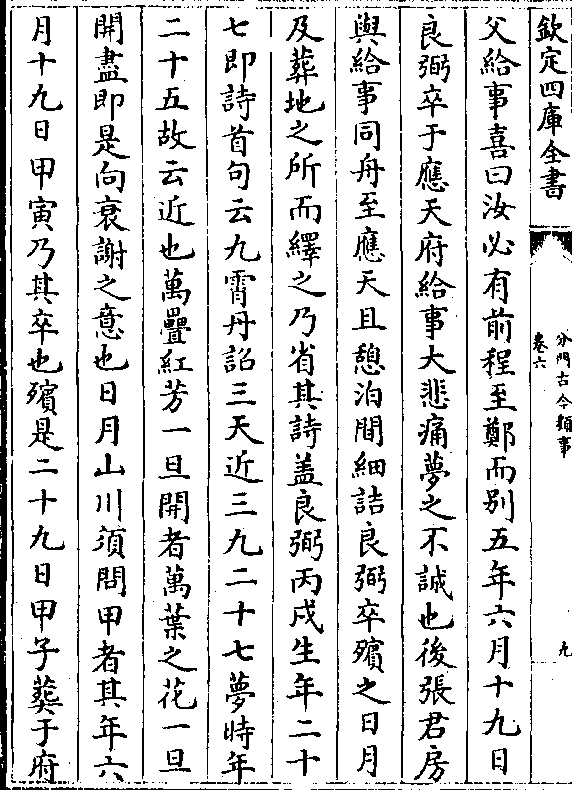 欽定四庫全書
分門古今類事
卷六
九
父給事喜曰汝必有前程至鄭而别五年六月十九日
良弼卒于應天府給事大悲痛夢之不誠也後張君房
與給事同舟至應天且憩泊間細詰良弼卒殯之日月
及葬地之所而繹之乃省其詩盖良弼丙戌生年二十
七即詩首句云九霄丹詔三天近三九二十七夢時年
二十五故云近也萬疊紅芳一旦開者萬葉之花一旦
開盡即是向衰謝之意也日月山川須問甲者其年六
月十九日甲寅乃其卒也殯是二十九日甲子葬于府